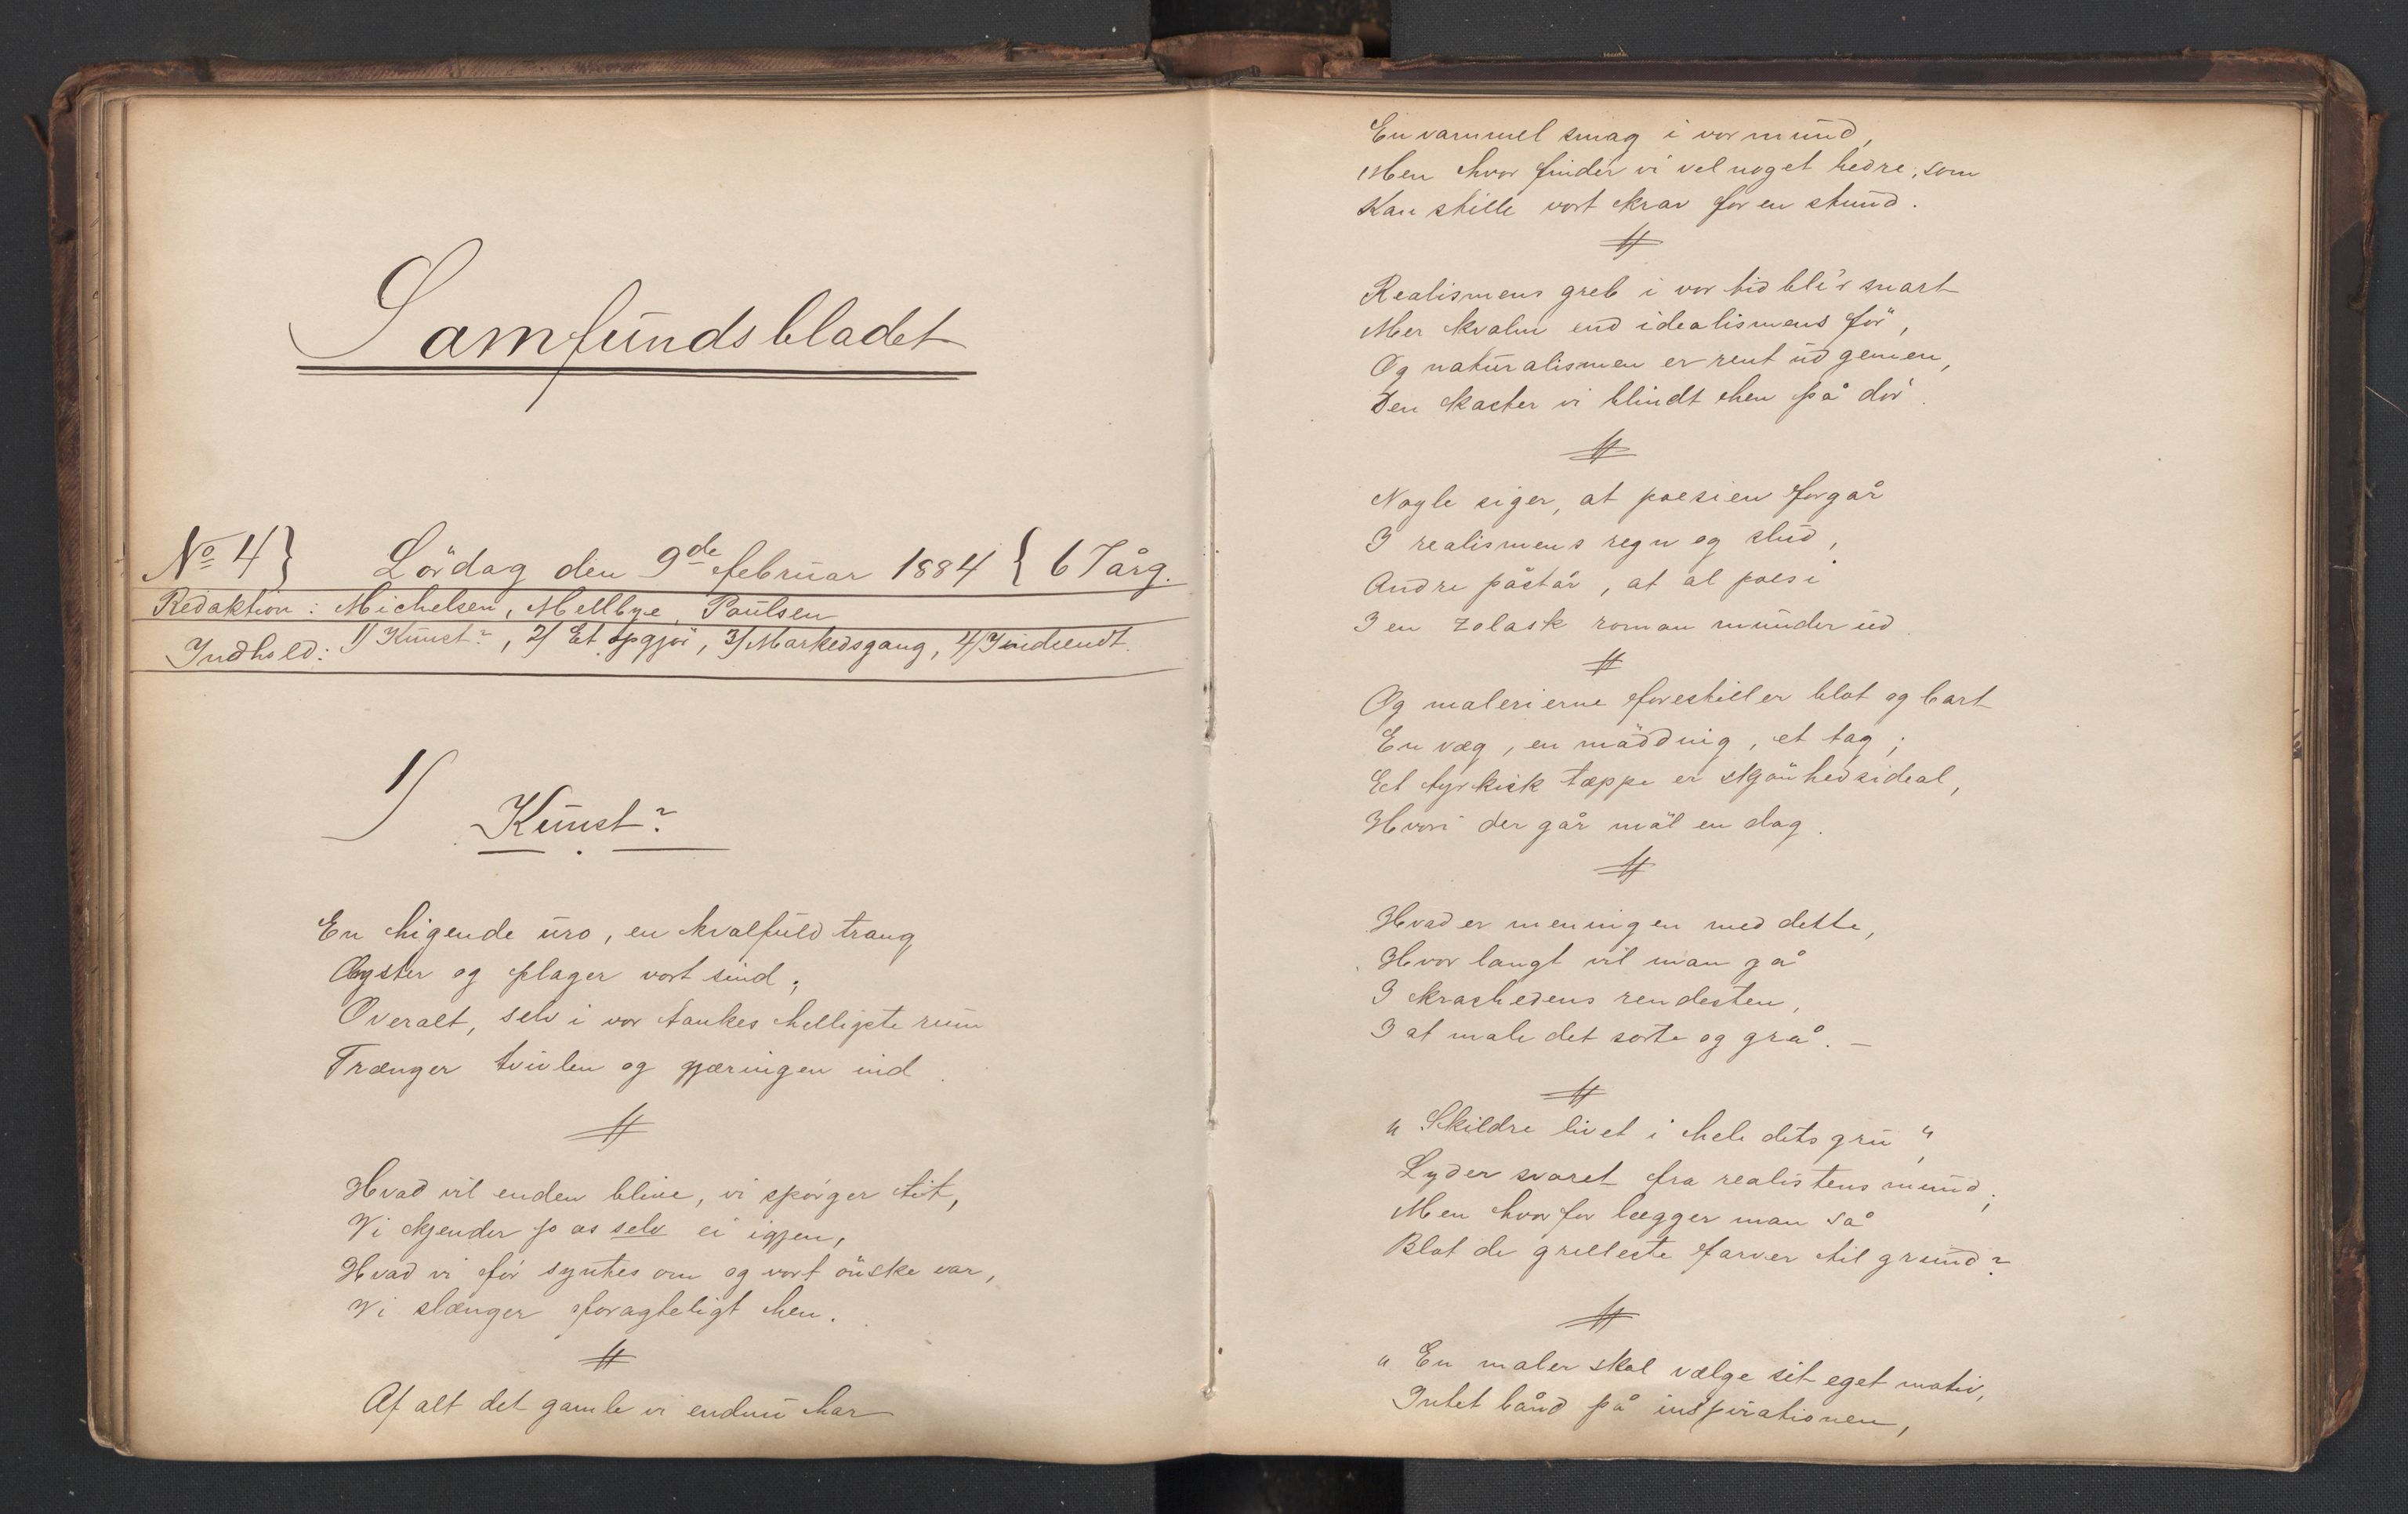 Samfundsbladet
No 4} Lördag den 9de februar 1884 {6 Årg.
Redaktion: Michelsen, Mellbye, Paulsen
Indhold: 1/ Kunst?, 2/ Et opgjör, 3/ Markedsgang, 4/ Indsendt.
1/ Kunst?
En higende uro, en kvalfuld trang
Ryster og plager vort sind;
Overalt, selv i vor tankes helligste rum
Trænger tvivlen og gjæringen ind.
Hvad vil enden blive, vi spörger tit,
Vi kjender jo os selv ei igjen,
Hvad vi för syntes om og vort önske var,
Vi slænger foragteligt hen.
Af alt det gamle vi endnu har
En vammel smag i vor mund,
Men hvor finder vi vel noget bedre, som
Kan stille vort krav for en stund.
Realismens greb i vor tid bli'r snart
Mer kvalm end idealismens för,
Og naturalismen er rent ud gemen,
Den kaster vi blindt hen på dör.
Nogle siger, at poesien forgår
I realismens regn og slud,
Andre påstår, at al poesi
I en zolask roman munder ud.
Og malerierne forestiller blot og bart
En væg, en mödding, et tag;
Et tyrkisk tæppe er skjönhedsideal,
Hvori der går möl en dag.
Hvad er meningen med dette,
Hvor langt vil man gå
I krashedens rendesten,
I at male det sorte og grå. —
„Skildre livet i hele dets gru",
Lyder svaret fra realistens mund;
Men hvorfor lægger man så
Blot de grelleste farver til grund?
„En maler skal vælge sit eget motiv,
Intet bånd på inspirationen,